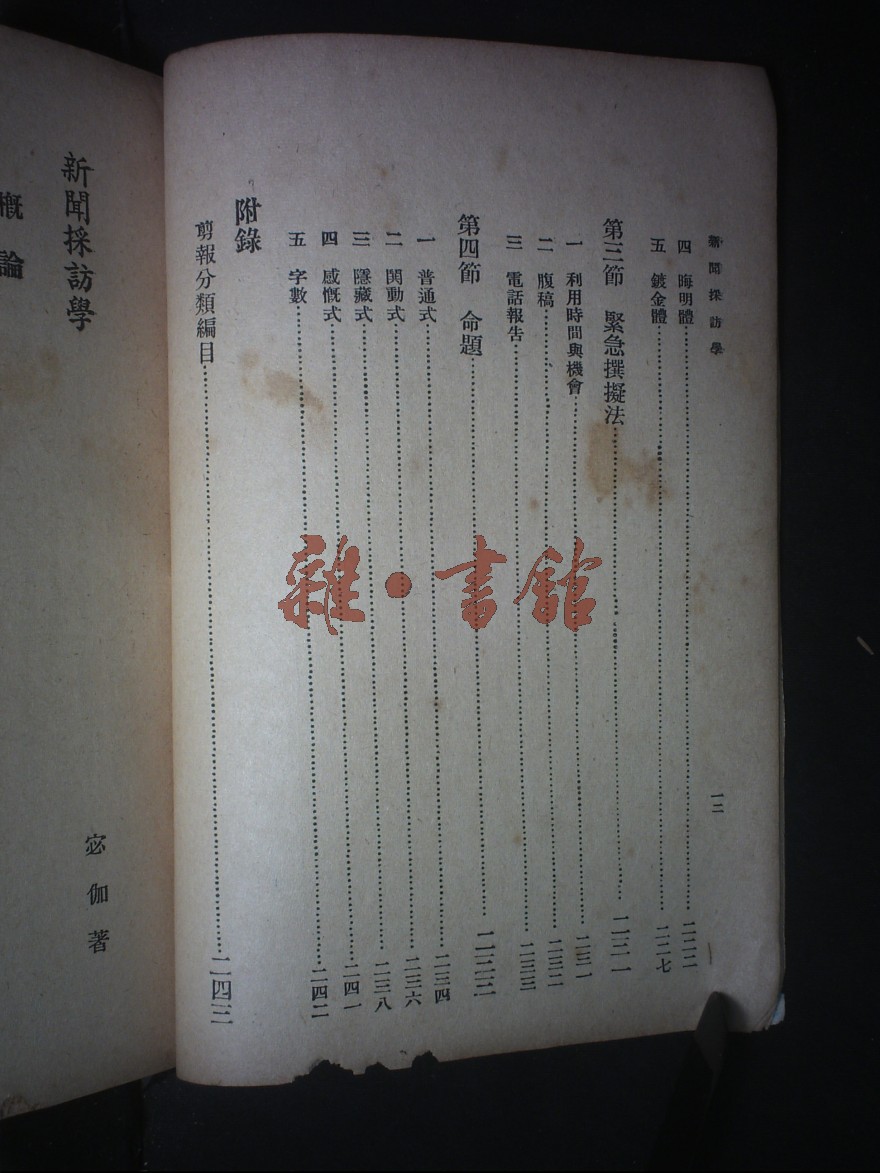 新聞採訪學 一二
四 晦明體……二二二
五 鍍金體……二二七
第三節 緊急撰擬法……二三一
一 利用時間與機會……二三一
二 腹稿……二三二
三 電話報告……二三三
第四節 命題……二三三
一 普通式……二三四
二 閧動式……二三六
三 隱藏式……二三八
四 感慨式……二四一
五 字數……二四二
附錄
剪報分類編目……二四三
宓伽著
新聞採訪學
概論
雜·書館